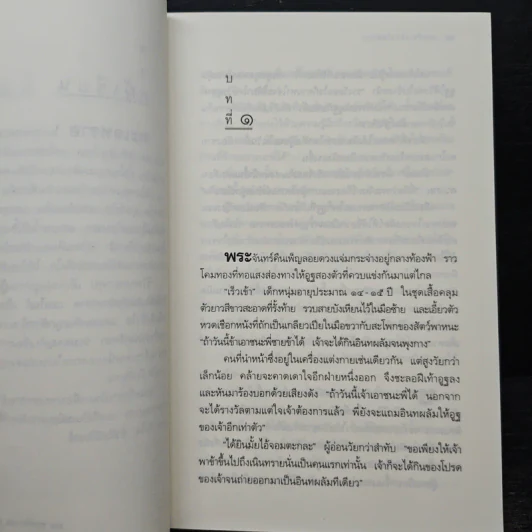 บ
ท
ที่ ๑
พระจันทร์คืนเพ็ญลอยดวงแจ่มกระจ่างอยู่กลางท้องฟ้า ราว
โคมทองที่ทอแสงส่องทางให้อูฐสองตัวที่ควบแข่งกันมาแต่ไกล
"เร็วเข้า" เด็กหนุ่มอายุประมาณ ๑๔-๑๕ ปี ในชุดเสื้อคลุม
ตัวยาวสีขาวสะอาดที่รั้งท้าย รวบสายบังเหียนไว้ในมือซ้าย และเอี้ยวตัว
หวดเชือกหนังที่ถักเป็นเกลียวเปียในมือขวากับสะโพกของสัตว์พาหนะ
"ถ้าวันนี้ข้าเอาชนะพี่ชายข้าได้ เจ้าจะได้กินอินทผลัมจนพุงกาง"
คนที่นำหน้าซึ่งอยู่ในเครื่องแต่งกายเช่นเดียวกัน แต่สูงวัยกว่า
เล็กน้อย คล้ายจะคาดเดาใจอีกฝ่ายหนึ่งออก จึงชะลอฝีเท้าอูฐลง
และหันมาร้องบอกด้วยเสียงดัง "ถ้าวันนี้เจ้าเอาชนะพี่ได้ นอกจาก
จะได้รางวัลตามแต่ใจเจ้าต้องการแล้ว พี่ยังจะแถมอินทผลัมให้อูฐ
ของเจ้าอีกเท่าตัว"
"ได้ยินมั้ยไอ้จอมตะกละ" ผู้อ่อนวัยกว่าสำทับ "ขอเพียงให้เจ้า
พาข้าขึ้นไปถึงเนินทรายนั่นเป็นคนแรกเท่านั้น เจ้าก็จะได้กินของโปรด
ของเจ้าจนถ่ายออกมาเป็นอินทผลัมทีเดียว"